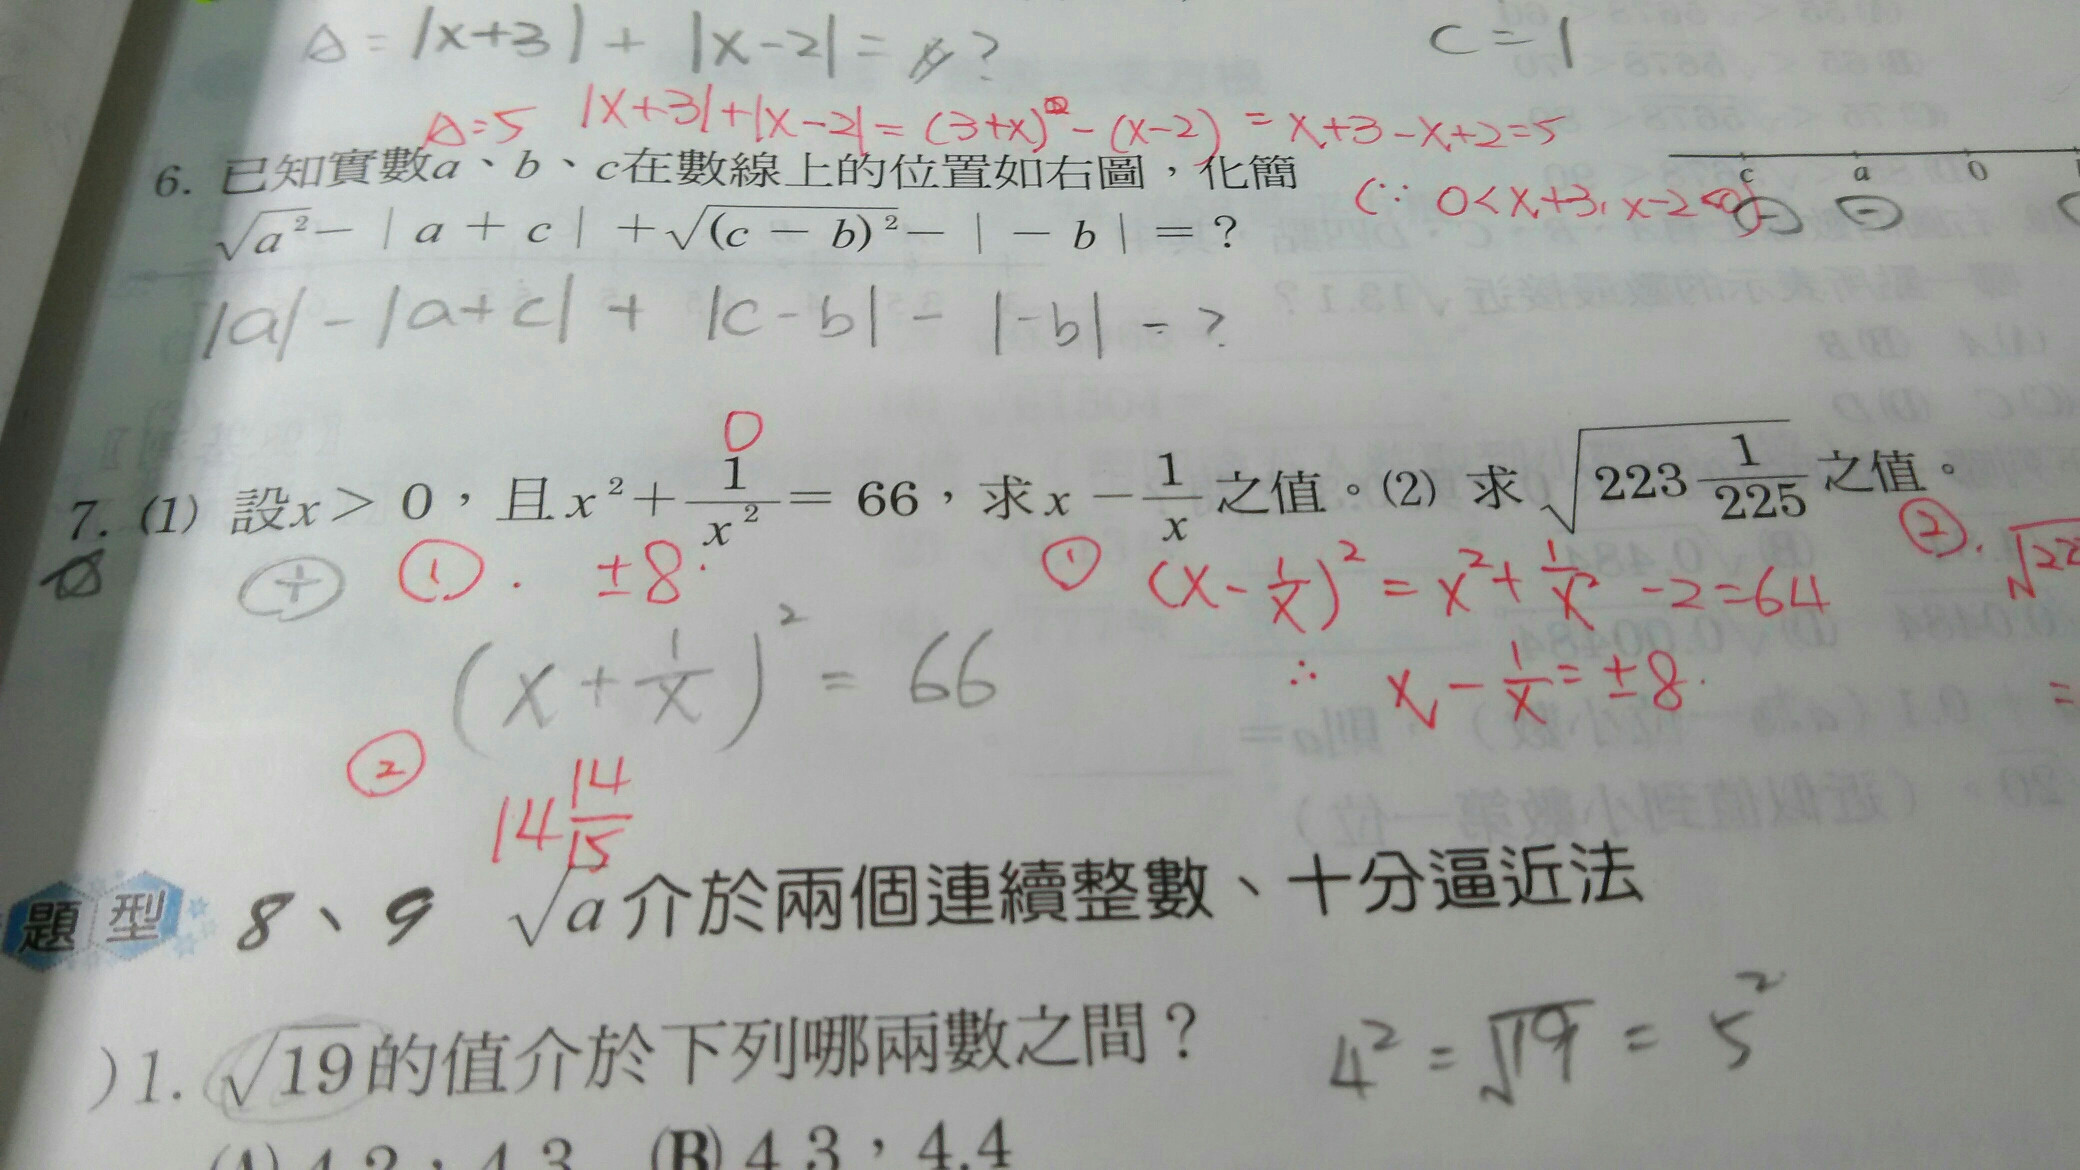 △ = |x+3| + |x-2| = ?
c = 1
△=5 |x+3|+|x-2| = (3+x) - (x-2) = x+3-x+2=5
6. 已知實數a、b、c在數線上的位置如右圖，化簡
(∵ 0<x+3, x-2<0)
c a 0
√a² - | a + c | + √(c - b)² - | - b | = ?
|a| - |a+c| + |c-b| - |-b| = ?
0
7. (1) 設x > 0，且x² + 1/x² = 66，求x - 1/x之值。(2) 求√(223 1/225)之值。
+ ① . ±8.
① (x - 1/x)² = x² + 1/x² - 2 = 64
②. √22
(x + 1/x)² = 66
∴ x - 1/x = ±8.
=
② 14 14/15
題型 8、9 √a介於兩個連續整數、十分逼近法
)1. √19的值介於下列哪兩數之間？
4² = √19 = 5²
(A) 4.2，4.3 (B) 4.3，4.4